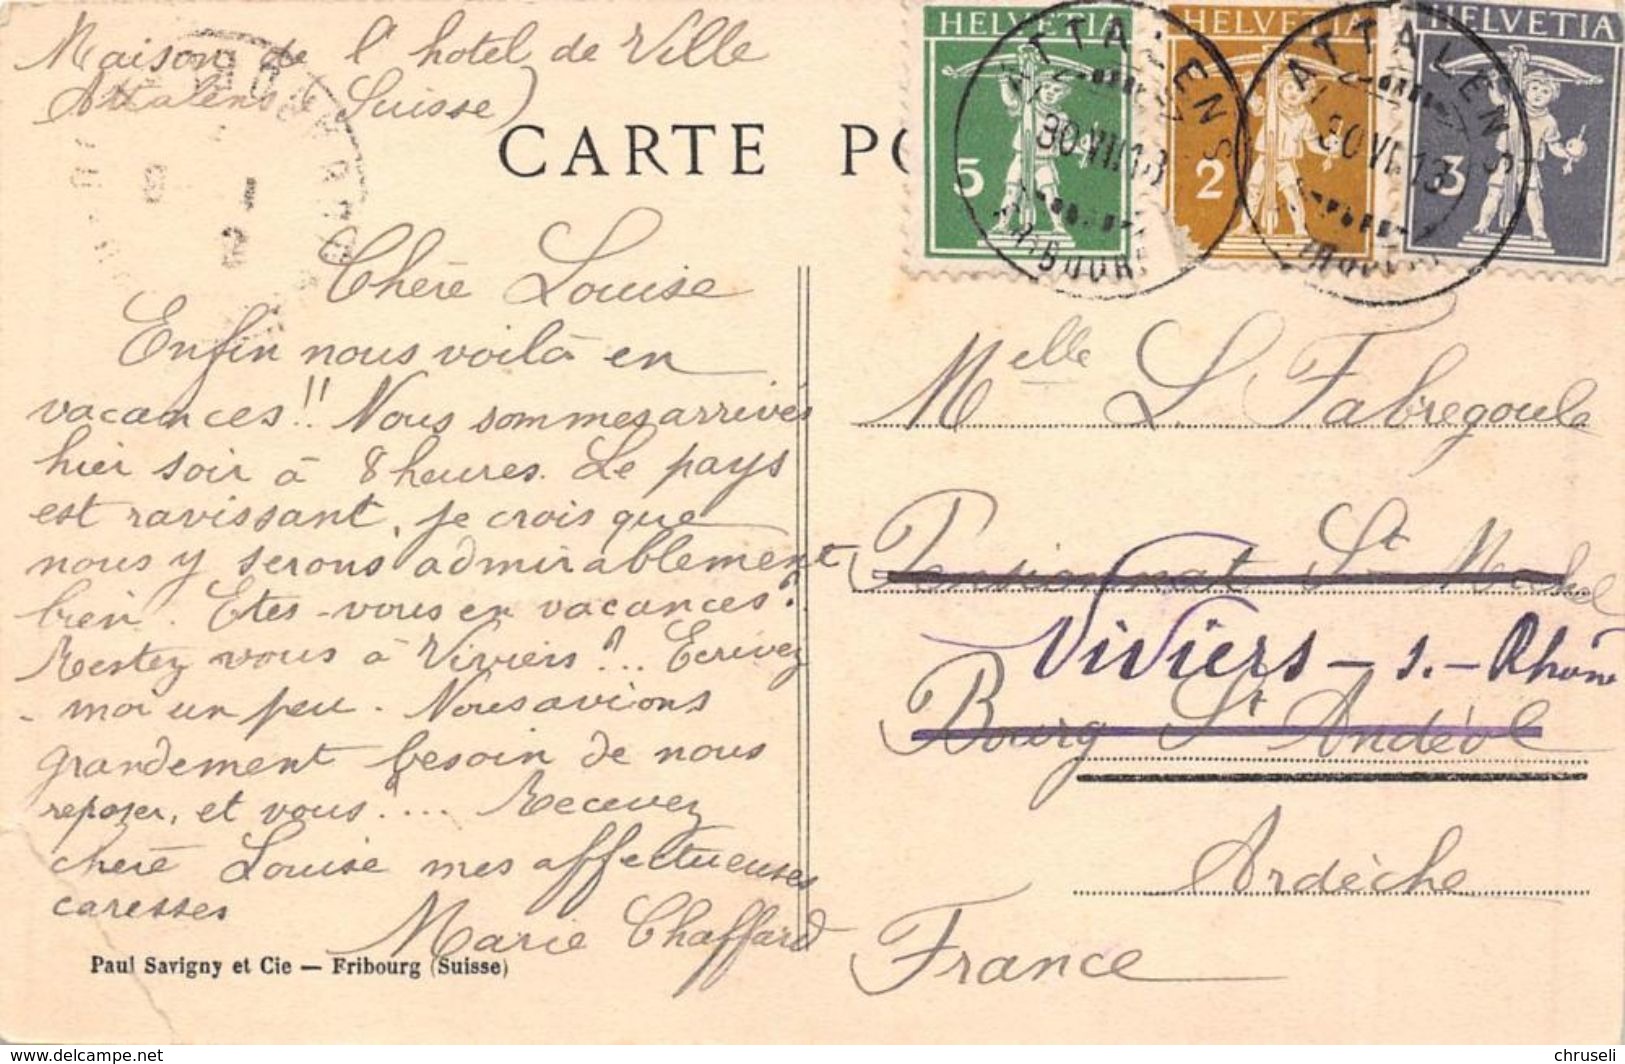 Maison de l'hotel de Ville
Attalens (Suisse)
CARTE PO
HELVETIA
5
HELVETIA
2
HELVETIA
3
ATTALENS
30.VII.13
ATTALENS
30.VII.13
Chère Louise
Enfin nous voilà en
vacances!! Nous sommes arrivés
hier soir à 8 heures. Le pays
est ravissant, je crois que
nous y serons admirablement
bien. Etes-vous en vacances?
Restez vous à Viviers?... Ecrivez
- moi un peu. Nous avions
grandement besoin de nous
reposer, et vous?... Recevez
chère Louise mes affectueuses
caresses
Marie Chaffard
Paul Savigny et Cie — Fribourg (Suisse)
Melle L. Fabregoule
Pensionnat St Michel
Viviers - s. - Rhône
Bourg St Andéol
Ardèche
France
delcampe.net
chruseli